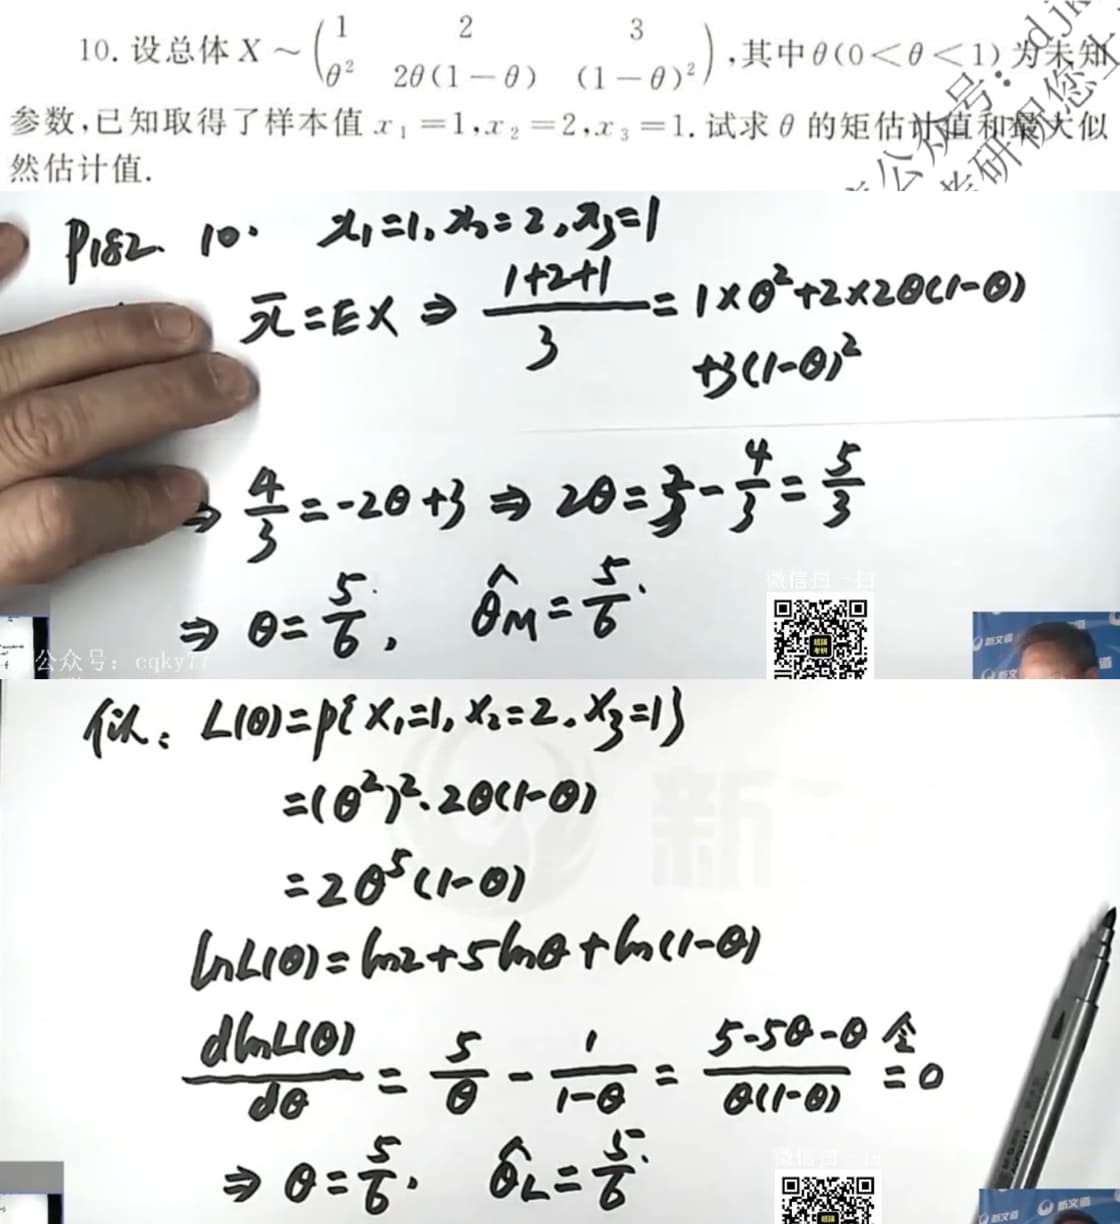 10. 设总体 X ~ ( 1 2 3
θ² 2θ(1-θ) (1-θ)² ),其中 θ(0<θ<1) 为未知
参数,已知取得了样本值 x₁=1,x₂=2,x₃=1. 试求 θ 的矩估计值和最大似
然估计值.
P182. 10. x₁=1, x₂=2, x₃=1
x̄=EX ⇒ (1+2+1)/3 = 1×θ²+2×2θ(1-θ)
+3(1-θ)²
⇒ 4/3 = -2θ+3 ⇒ 2θ = 3 - 4/3 = 5/3
⇒ θ = 5/6, θ̂M = 5/6.
微信扫一扫
公众号: cqky77
新文道
似: L(θ)=P{X₁=1, X₂=2, X₃=1}
=(θ²)²·2θ(1-θ)
=2θ⁵(1-θ)
lnL(θ)=ln2+5lnθ+ln(1-θ)
dlnL(θ)/dθ = 5/θ - 1/(1-θ) = (5-5θ-θ)/(θ(1-θ)) 令= 0
⇒ θ = 5/6. θ̂L = 5/6.
新文道